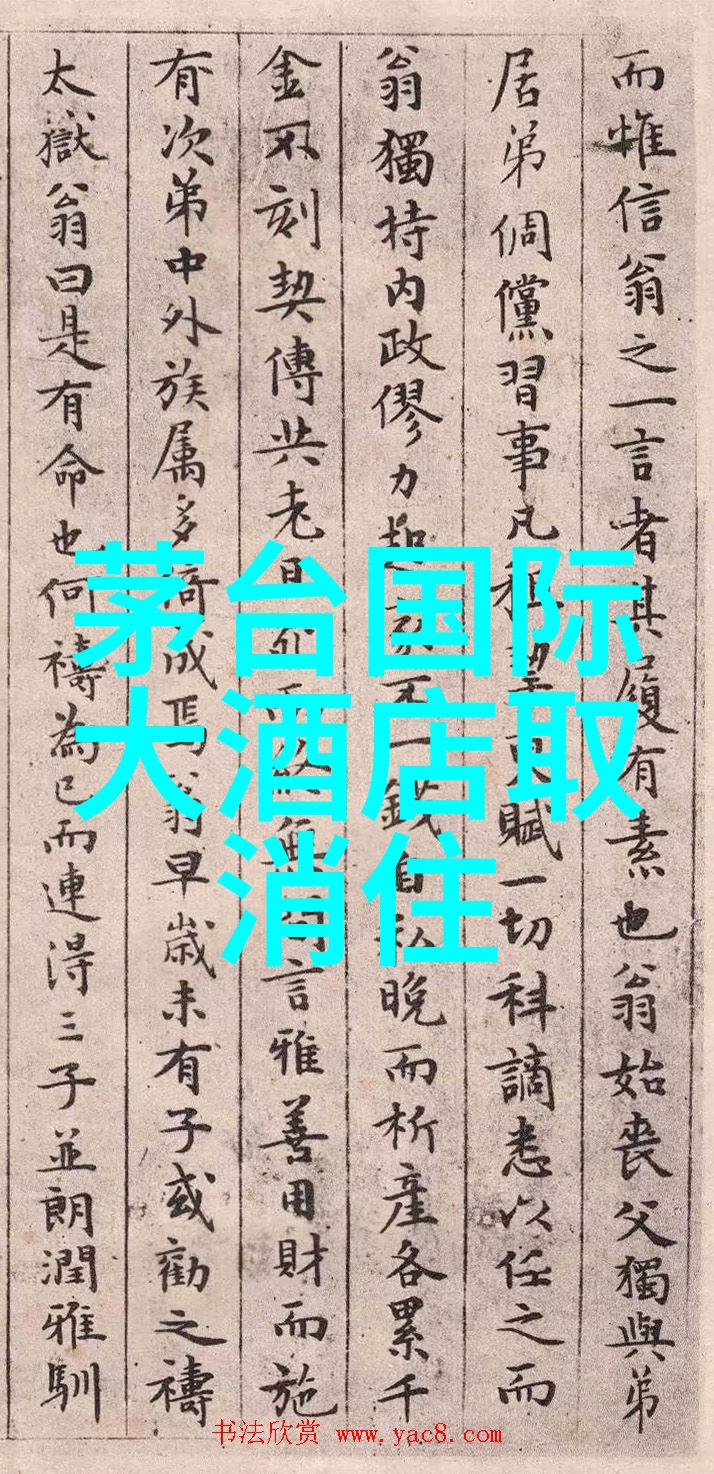 而惟信翁之一言者其履有素也翁始喪父獨與弟
居弟倜儻習事凡租賦一切科謫悉以任之而
翁獨持内政僇力起不一錢自私晚而析産各累千
金不刻契傳共老言雅善用財而施
有次弟中外族属多倚成焉翁早歳未有子或勸之禱
太嶽翁曰是有命也何禱為已而連得三子並朗潤雅馴
茅台国际
大酒店取
消住
书法欣赏 www.yac8.com